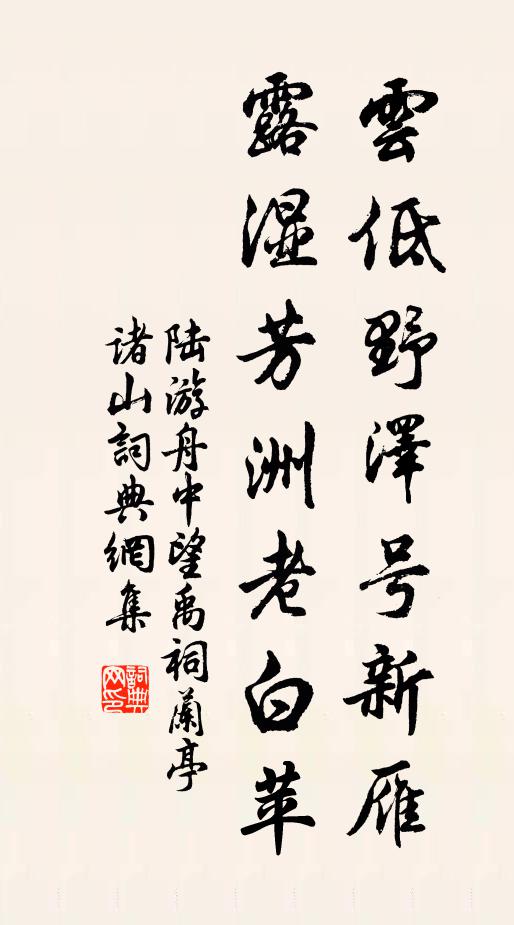 雲低野澤号新雁
露湿芳洲老白苹
陆游舟中望禹祠蘭亭
诸山詞典網集
詞典网印